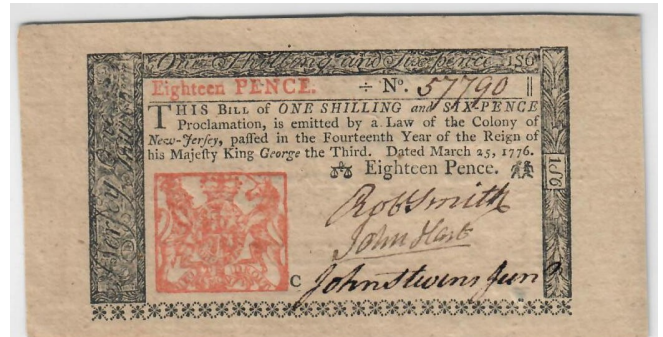 One Shilling and Six pence 1S6
Eighteen PENCE. ÷ Nº. 57790 ||
THIS BILL of ONE SHILLING and SIXPENCE
Proclamation, is emitted by a Law of the Colony of
New-Jerſey, paſſed in the Fourteenth Year of the Reign of
his Majeſty King George the Third. Dated March 25, 1776.
Eighteen Pence.
1S6
RobSmith
John Hart
C John Stevens Junr